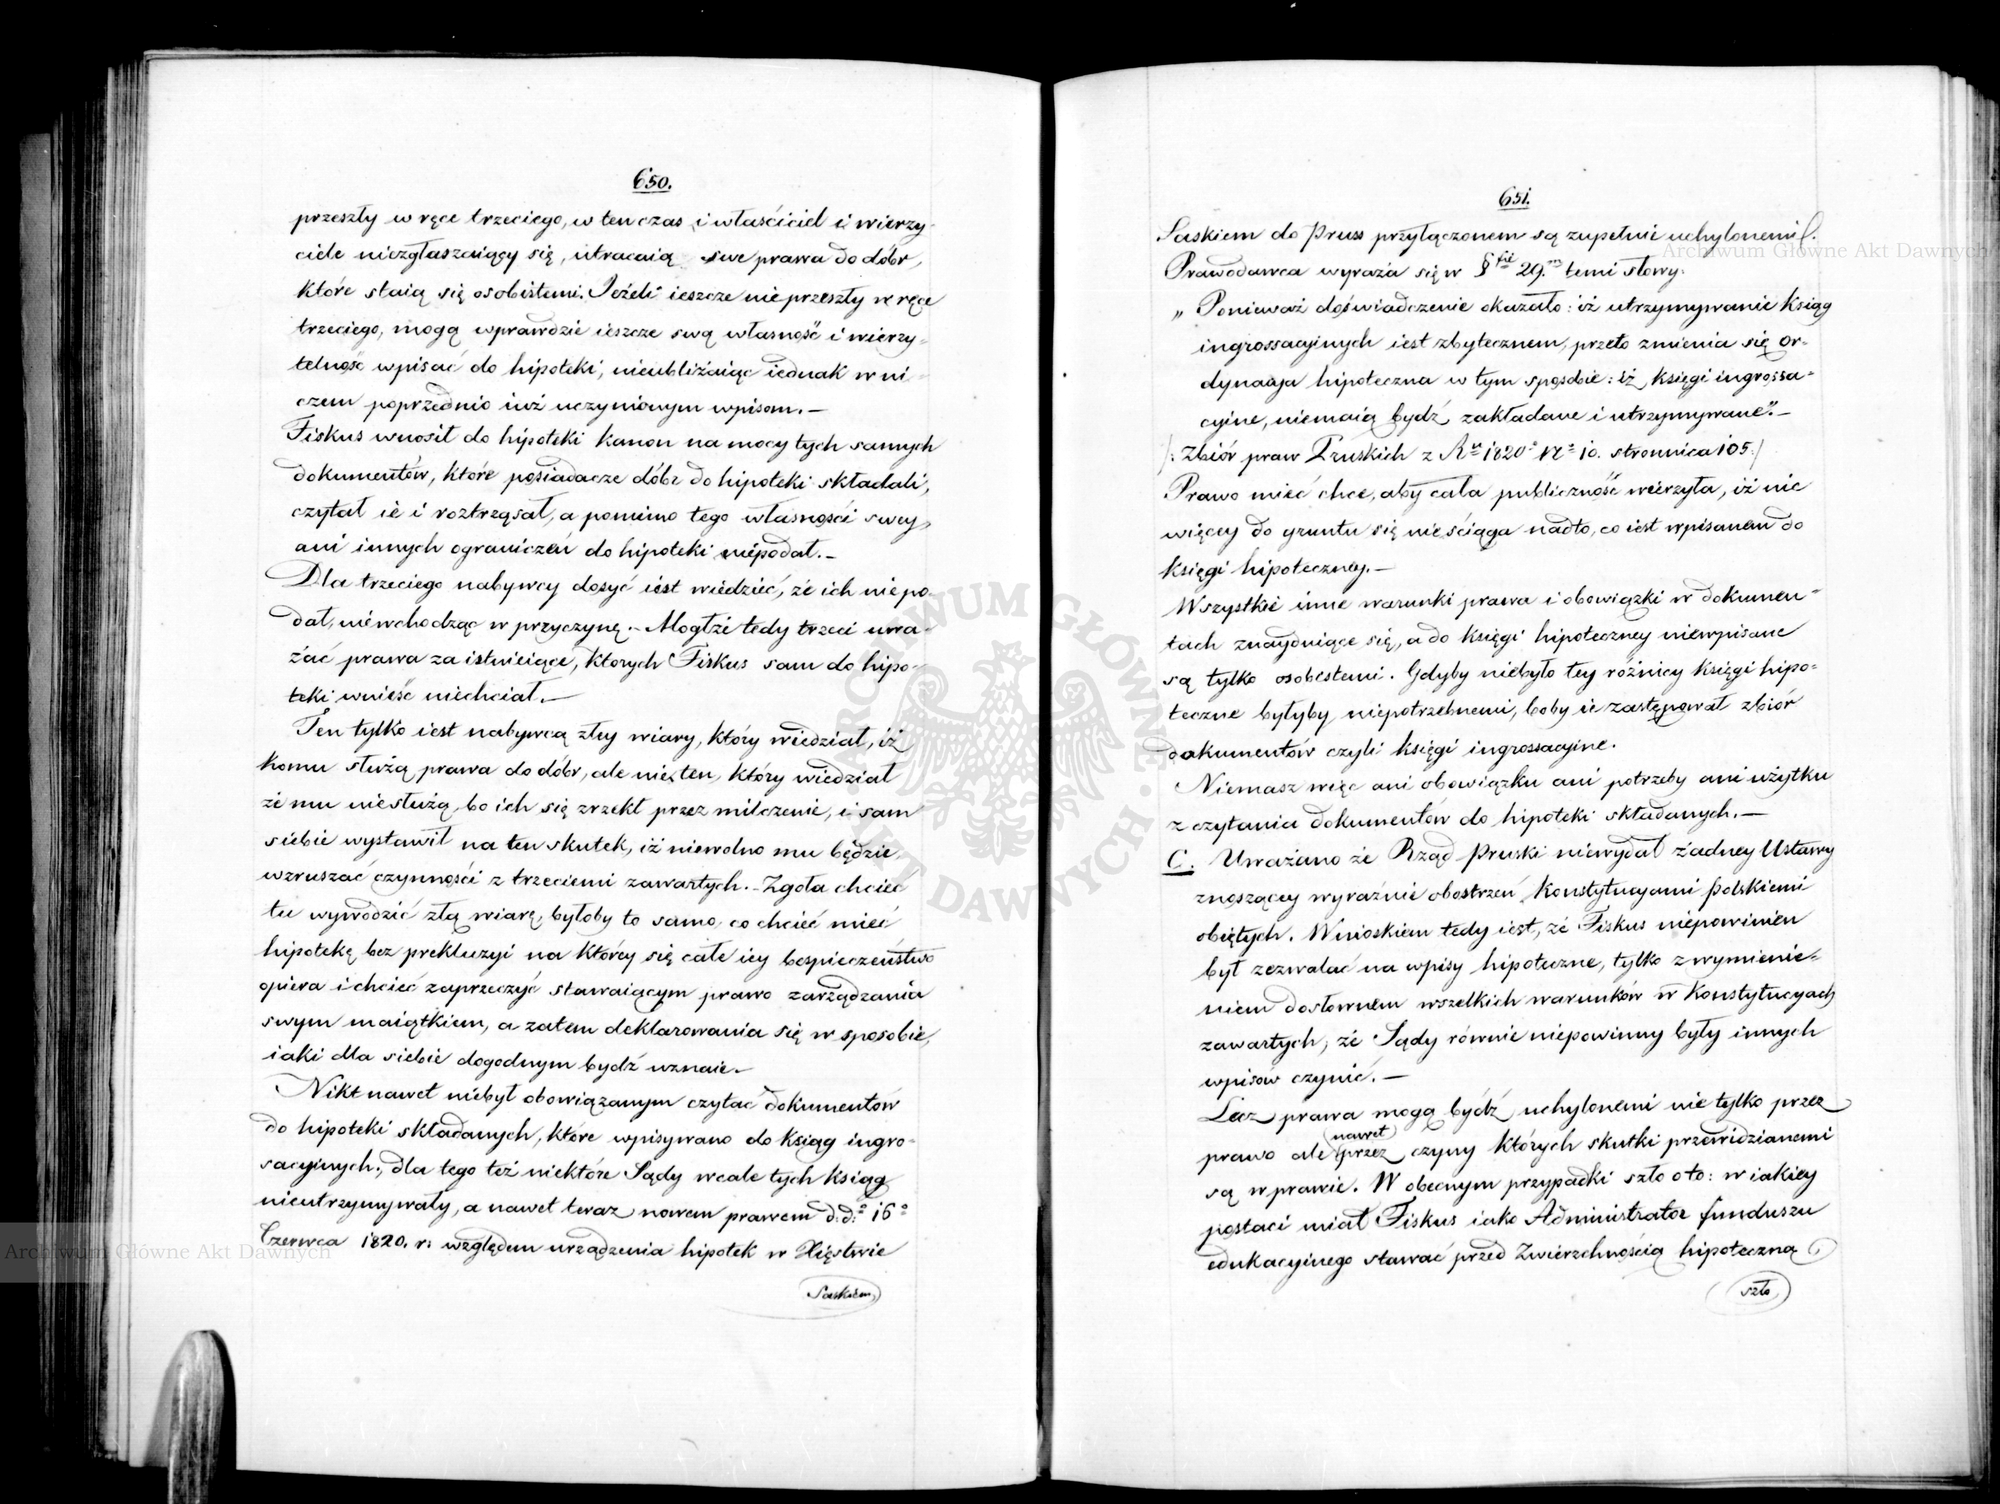 650.
przeszły w ręce trzeciego, w ten czas i właściciel i wierzy-
ciele niezgłaszaiący się, utracaią swe prawa do dóbr,
które staią się osobistemi. Jeżeli ieszcze nie przeszły w ręce
trzeciego, mogą wprawdzie ieszcze swą własność i wierzy-
telność wpisać do hipoteki, nieubliżaiąc iednak w ni-
czem poprzednio iuż uczynionym wpisom. —
Fiskus wnosił do hipoteki kanon na mocy tych samych
dokumentów, które posiadacze dóbr do hipoteki składali,
czytał ie i roztrząsał, a pomimo tego własności swey,
ani innych ograniczeń do hipoteki niepodał. —
Dla trzeciego nabywcy dosyć iest wiedzieć, że ich niepo-
dał, niewchodząc w przyczynę. — Mogłże tedy trzeci uwa-
żać prawa za istnieiące, których Fiskus sam do hipo-
teki wnieść niechciał. —
Ten tylko iest nabywcą złey wiary, który wiedział, iż
komu służą prawa do dóbr, ale nie ten, który wiedział
że mu niesłużą, bo ich się zrzekł przez milczenie, i sam
siebie wystawił na ten skutek, iż niewolno mu będzie
wzruszać czynności z trzeciemi zawartych. — Zgoła chcieć
tu wywodzić złą wiarę, byłoby to samo, co chcieć mieć
hipotekę bez prekluzyi na którey się całe iey bespieczeństwo
opiera i chcieć zaprzeczyć stawaiącym prawo zarządzania
swym maiątkiem, a zatem deklarowania się w sposobie,
iaki dla siebie dogodnym bydź uznaie. —
Nikt nawet niebył obowiązanym czytać dokumentów
do hipoteki składanych, które wpisywano do ksiąg ingro-
sacyinych; dla tego też niektóre Sądy wcale tych ksiąg
nieutrzymywały, a nawet teraz nowem prawem d: d:o 16o
Czerwca 1820. r: względem urządzenia hipotek w Xięstwie
Saskiem,
651.
Saskiem do Pruss przyłączonem są zupełnie uchylonemi.
Prawodawca wyraża się w § 29. temi słowy:
„ Ponieważ doświadczenie okazało: iż utrzymywanie ksiąg
ingrossacyinych iest zbytecznem, przeto zmienia się or-
dynacya hipoteczna w tym sposobie: iż księgi ingrossa-
cyine, niemaią bydź zakładane i utrzymywane". —
/: Zbiór praw Pruskich z Ru 1820o No 10. stronnica 105 :/
Prawo mieć chce, aby cała publiczność wierzyła, iż nic
więcey do gruntu się nieściąga nadto, co iest wpisanem do
księgi hipoteczney. —
Wszystkie inne warunki prawa i obowiązki w dokumen-
tach znayduiące się, a do księgi hipoteczney niewpisane
są tylko osobistemi. Gdyby niebyło tey różnicy księgi hipo-
teczne byłyby niepotrzebnemi, boby ie zastępował zbiór
dokumentów czyli księgi ingrossacyine.
Niemasz więc ani obowiązku ani potrzeby ani użytku
z czytania dokumentów do hipoteki składanych. —
C. Uważano że Rząd Pruski niewydał żadney Ustawy
znoszącey wyraźnie obostrzeń Konstytucyami Polskiemi
obiętych. Wnioskiem tedy iest, że Fiskus niepowinien
był zezwalać na wpisy hipoteczne, tylko z wymienie-
niem dosłownem wszelkich warunków w Konstytucyach
zawartych; że Sądy równie niepowinny były innych
wpisów czynić. —
Lecz prawa mogą bydź uchylonemi nie tylko przez
prawo ale nawet przez czyny których skutki przewidzianemi
są w prawie. W obecnym przypadku szło oto: w iakiey
postaci miał Fiskus iako Administrator funduszu
edukacyinego stawać przed Zwierzchnością hipoteczną,
szło
Archiwum Główne Akt Dawnych
Archiwum Główne Akt Dawnych
ARCHIWUM GŁÓWNE AKT DAWNYCH